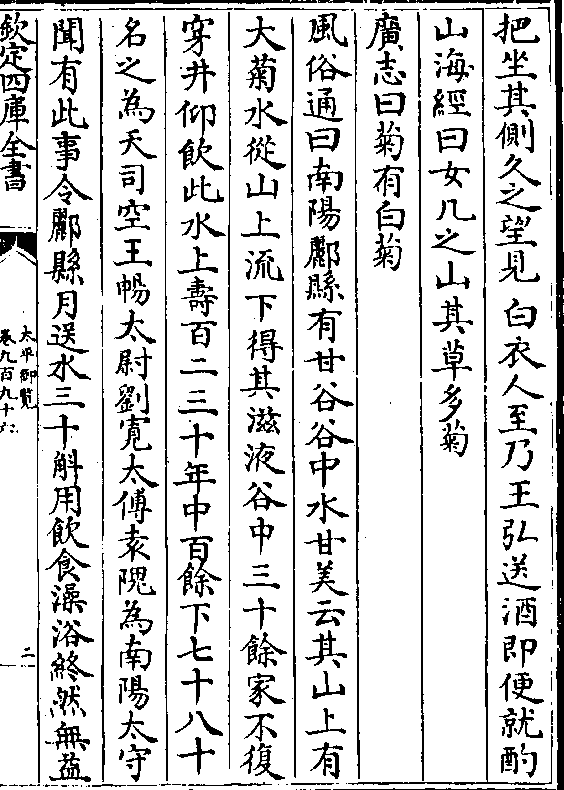 把坐其側久之望見白衣人至乃王弘送酒即便就酌
山海經曰女几之山其草多菊
廣志曰菊有白菊
風俗通曰南陽酈縣有甘谷谷中水甘美云其山上有
大菊水從山上流下得其滋液谷中三十餘家不復
穿井仰飲此水上壽百二三十年中百餘下七十八十
名之為夭司空王暢太尉劉寛太傅袁隗為南陽太守
聞有此事令酈縣月送水三十斛用飲食澡浴終然無益
欽定四庫全書
太平御覧
卷九百九十六
二